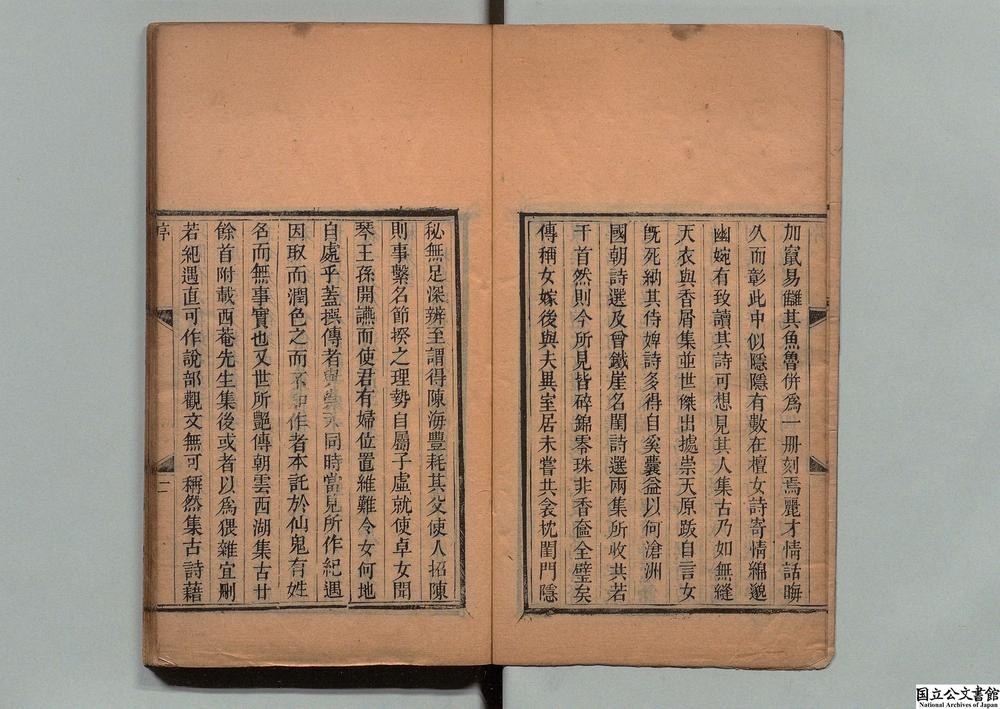 加竄易讎其魚魯併為一冊刻焉麗才情話晦
久而彰此中似隱隱有數在檀女詩寄情綿邈
幽婉有致讀其詩可想見其人集古乃如無縫
天衣與香屑集並世傑出據崇天原跋自言女
旣死納其侍婢詩多得自奚囊益以何滄洲
國朝詩選及曾鐵崖名閨詩選兩集所收共若
干首然則今所見皆碎錦零珠非香奩全璧矣
傳稱女嫁後與夫異室居未嘗共衾枕閨門隱
秘無足深辨至謂得陳海豐耗其父使人招陳
則事繫名節揆之理勢自屬子虛就使卓女聞
琴王孫開讌而使君有婦位置維難令女何地
自處乎蓋撰傳者與崇天同時當見所作紀遇
因取而潤色之而不知作者本託於仙鬼有姓
名而無事實也又世所艷傳朝雲西湖集古廿
餘首附載西菴先生集後或者以為猥雜宜刪
若紀遇直可作說部觀文無可稱然集古詩藉
序
二
国立公文書館
National Archives of Japan